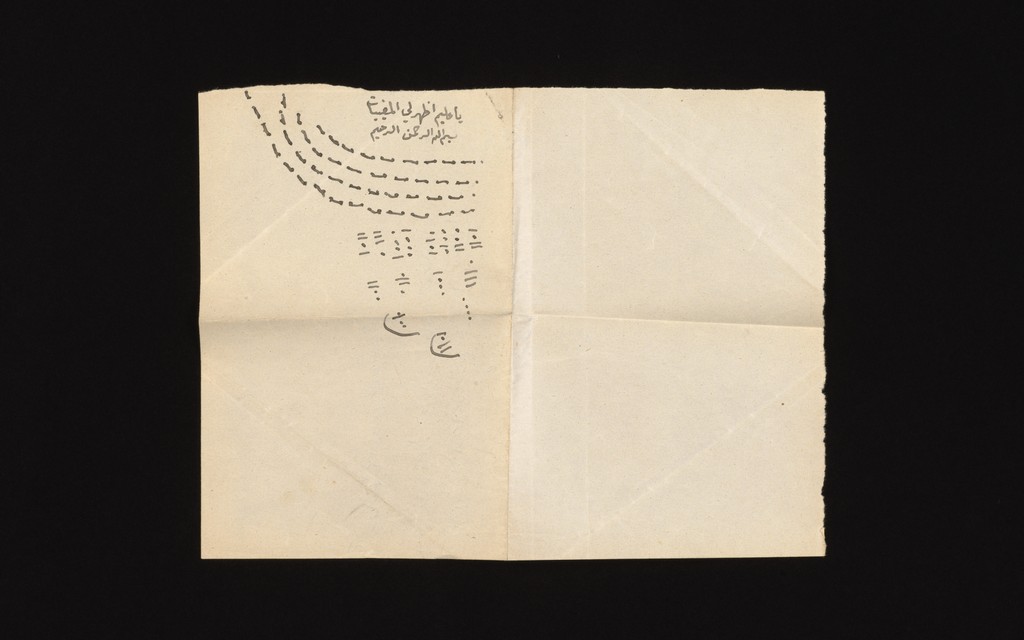 يا عليم اظهر لي المغيبات
بسم الله الرحمن الرحيم